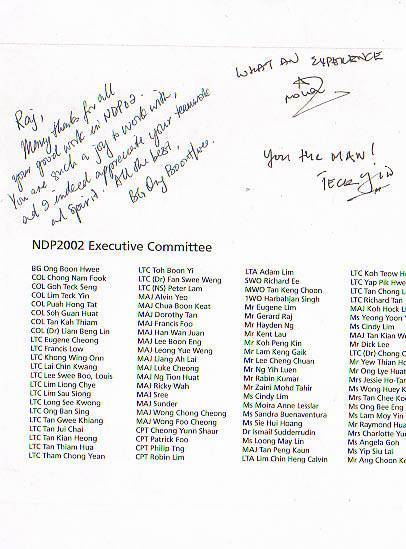 Raj,
Many thanks for all
your good work in NDP02.
You are such a joy to work with,
and I indeed appreciate your teamwork
and spirit. All the best,
BG Ong Boon Hwee.
WHAT AN EXPERIENCE
You THE MAN!
NDP2002 Executive Committee
BG Ong Boon Hwee
COL Chong Nam Fook
COL Goh Teck Seng
COL Lim Teck Yin
COL Puah Hong Tat
COL Soh Guan Huat
COL Tan Kah Thiam
COL (Dr) Liam Beng Lin
LTC Eugene Cheong
LTC Francis Low
LTC Khong Wing Onn
LTC Lai Chin Kwang
LTC Lee Swee Boo, Louis
LTC Lim Liong Chye
LTC Lim Sau Siong
LTC Long See Kwong
LTC Ong Ban Sing
LTC Tan Gwee Khiang
LTC Tan Jui Chai
LTC Tan Kian Heong
LTC Tan Thiam Hua
LTC Tham Chong Yean
LTC Toh Boon Yi
LTC (Dr) Pan Swee Weng
LTC (NS) Peter Lam
MAJ Alvin Yeo
MAJ Chua Boon Keat
MAJ Dorothy Tan
MAJ Francis Foo
MAJ Han Wan Juan
MAJ Lee Boon Eng
MAJ Leong Yue Weng
MAJ Liang Ah Lai
MAJ Luke Cheong
MAJ Ng Tion Huat
MAJ Ricky Wah
MAJ Sree
MAJ Sunder
MAJ Wong Chong Cheong
MAJ Wong Foo Cheong
CPT Cheong Yunn Shaur
CPT Patrick Foo
CPT Philip Tng
CPT Robin Lim
LTA Adam Lim
SWO Richard Ee
MWO Tan Keng Choon
1WO Harbahjan Singh
Mr Eugene Lim
Mr Gerard Raj
Mr Hayden Ng
Mr Kent Lau
Mr Koh Peng Kin
Mr Lam Keng Gaik
Mr Lee Cheng Chuan
Mr Ng Yih Luen
Mr Rabin Kumar
Mr Zaini Mohd Tahir
Ms Cindy Lim
Ms Moira Anne Lesslar
Ms Sandra Buenaventura
Ms Sie Hui Hoang
Dr Ismail Sudderrudin
Ms Loong May Lin
MAJ Tan Peng Kaun
LTA Lim Chin Heng Calvin
LTC Koh Teow H
LTC Yap Pik Hwe
LTC Tan Chong L
LTC Richard Tan
MAJ Koh Hock L
Ms Yeong Yoon Y
Ms Cindy Lim
MAJ Tan Kian W
Mr Dick Lee
LTC (Dr) Chong C
Mr Yew Thian Ho
Mr Ong Lye Huat
Mrs Jessie Ho-Tan
Ms Wong Huey K
Mrs Tan Chee Koo
Ms Ong Bee Eng
Ms Lam Moy Yin
Mr Raymond Hua
Mrs Charlotte Yu
Ms Angela Goh
Ms Yip Siu Lai
Mr Ang Choon K